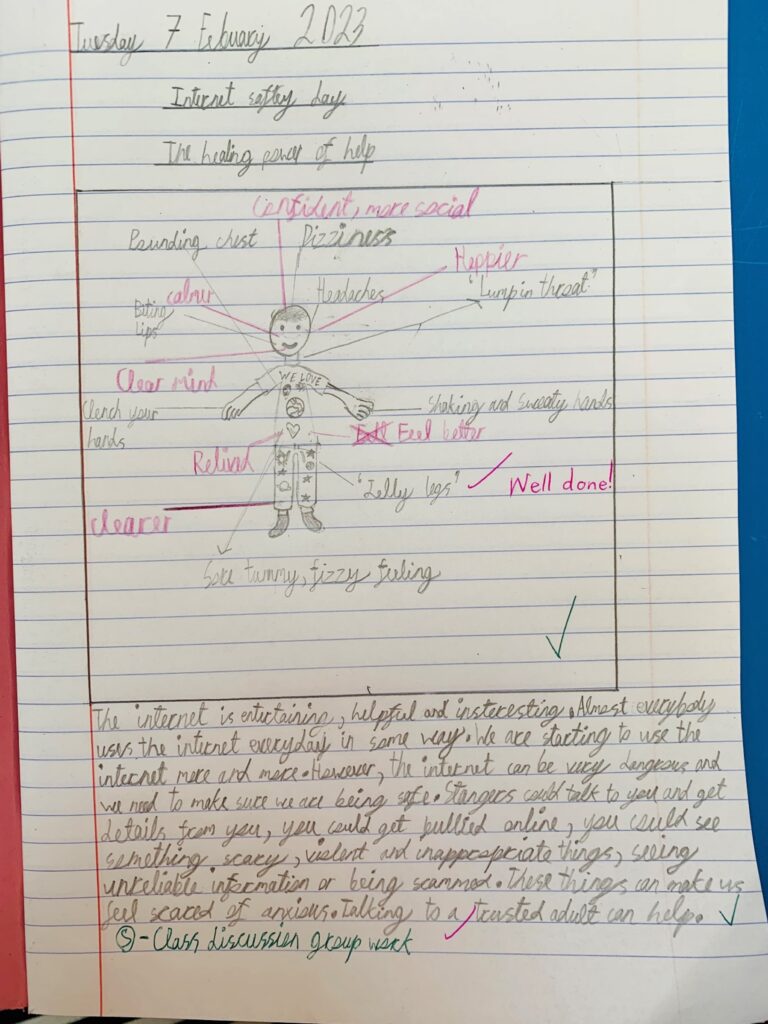 Tuesday 7 Febuary 2023
Internet saftey day
The healing power of help
Confident, more social
Pounding chest
Dizziness
Happier
calmer
Headaches
"Lump in throat"
Biting
lips
Clear mind
WE LOVE
Clench your
hands
Shaking and sweaty hands
Feel better
Relived
"Jelly legs"
Well done!
clearer
Sore tummy, fizzy feeling
The internet is entertaining, helpful and insteresting. Almost everybody
uses the internet everyday in some way. We are starting to use the
internet more and more. However, the internet can be very dangrous and
we need to make sure we are being safe. Stangers could talk to you and get
details from you, you could get bullied online, you could see
something scary, violent and inappropriate things, seeing
unreliable information or being scammed. These things can make us
feel scared of anxious. Talking to a trusted adult can help.
S - Class discussion group work